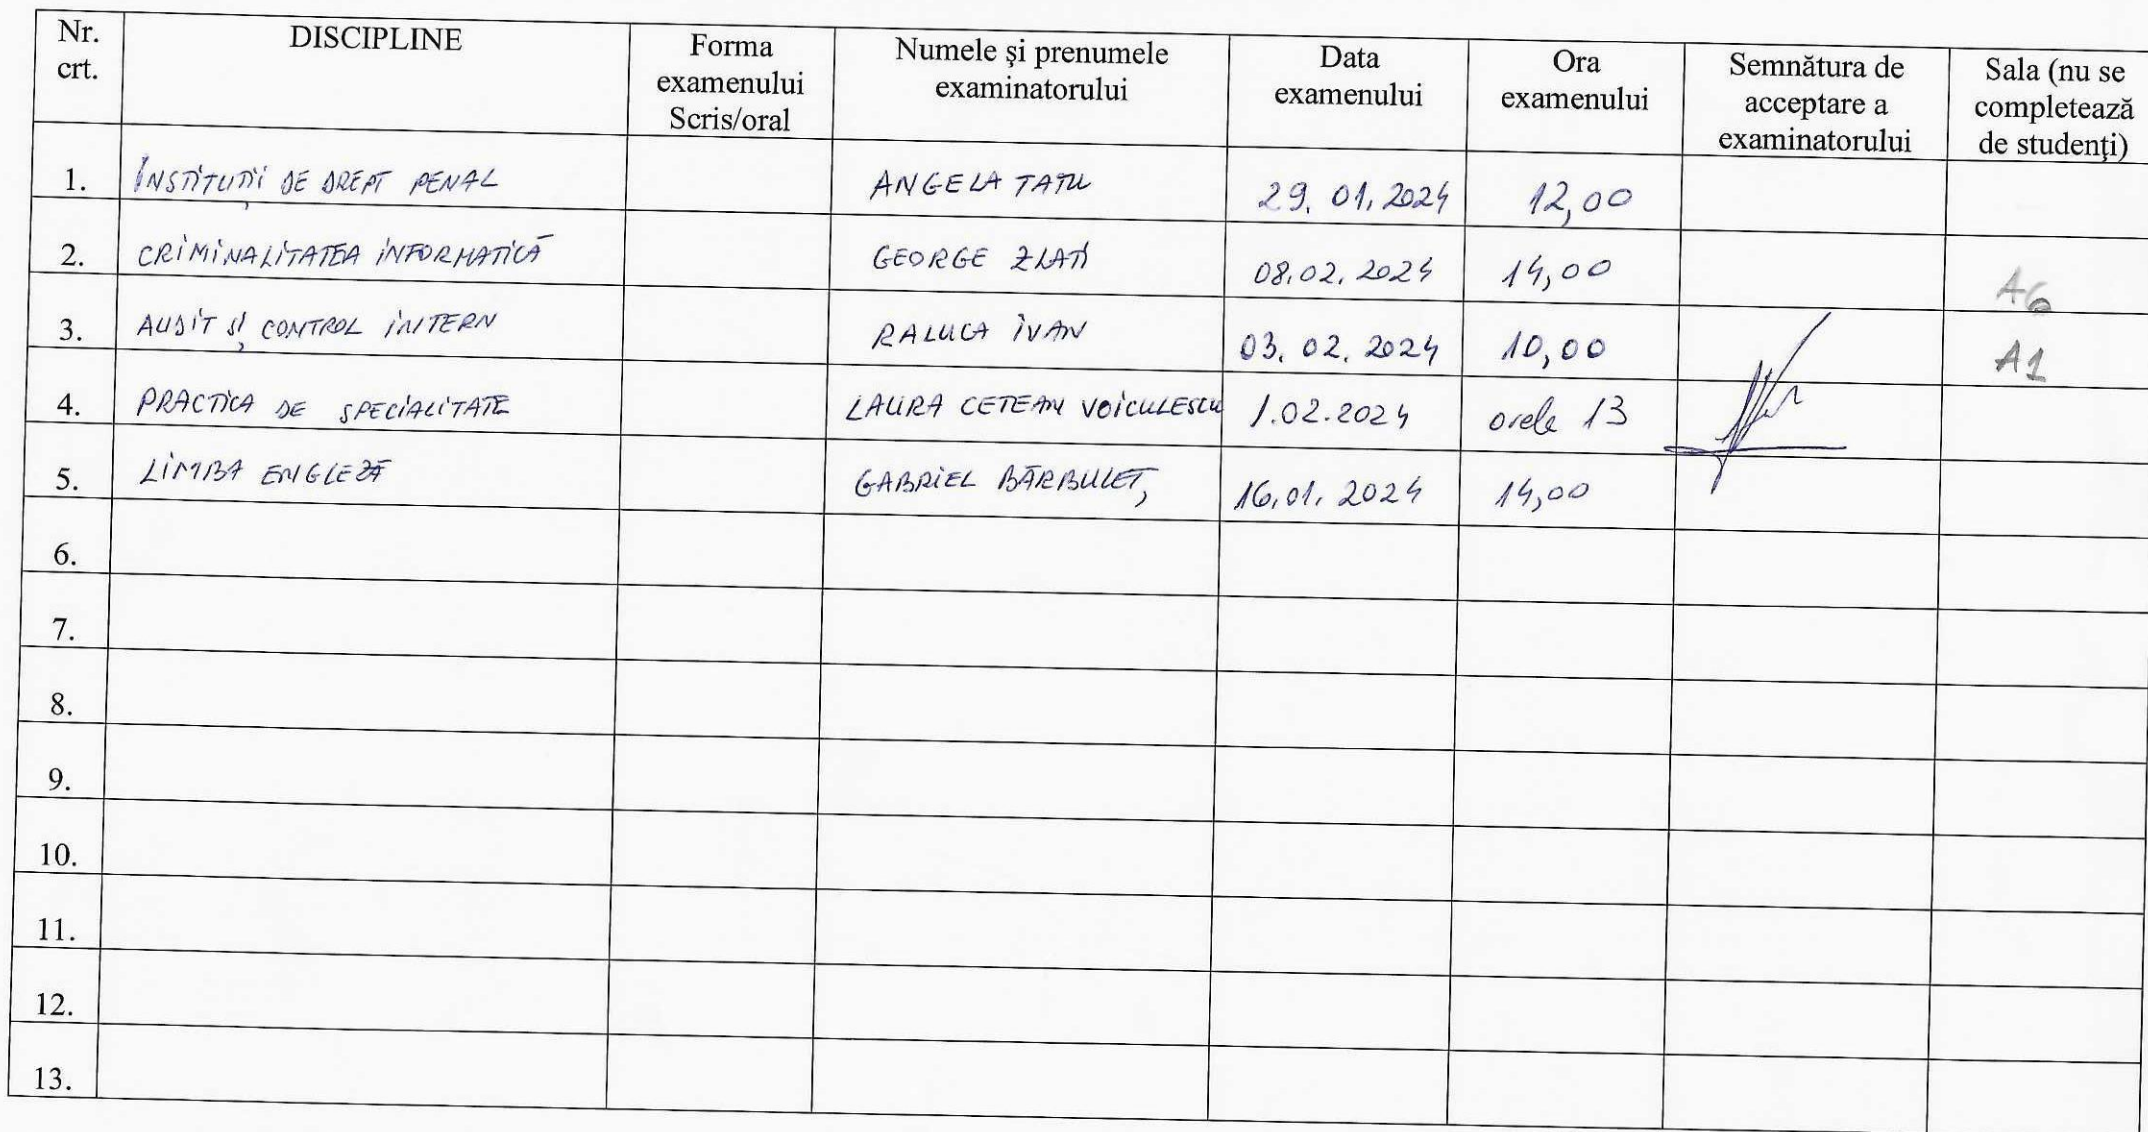 Nr. crt. DISCIPLINE Forma examenului Scris/oral Numele şi prenumele examinatorului Data examenului Ora examenului Semnătura de acceptare a examinatorului Sala (nu se completează de studenţi)
1. INSTITUȚII DE DREPT PENAL ANGELA TATU 29.01.2024 12,00
2. CRIMINALITATEA INFORMATICĂ GEORGE ZLATI 08.02.2024 14,00 A6
3. AUDIT ȘI CONTROL INTERN RALUCA IVAN 03.02.2024 10,00 A1
4. PRACTICA DE SPECIALITATE LAURA CETEAN VOICULESCU 1.02.2024 orele 13
5. LIMBA ENGLEZĂ GABRIEL BĂRBULEȚ 16.01.2024 14,00
6.
7.
8.
9.
10.
11.
12.
13.